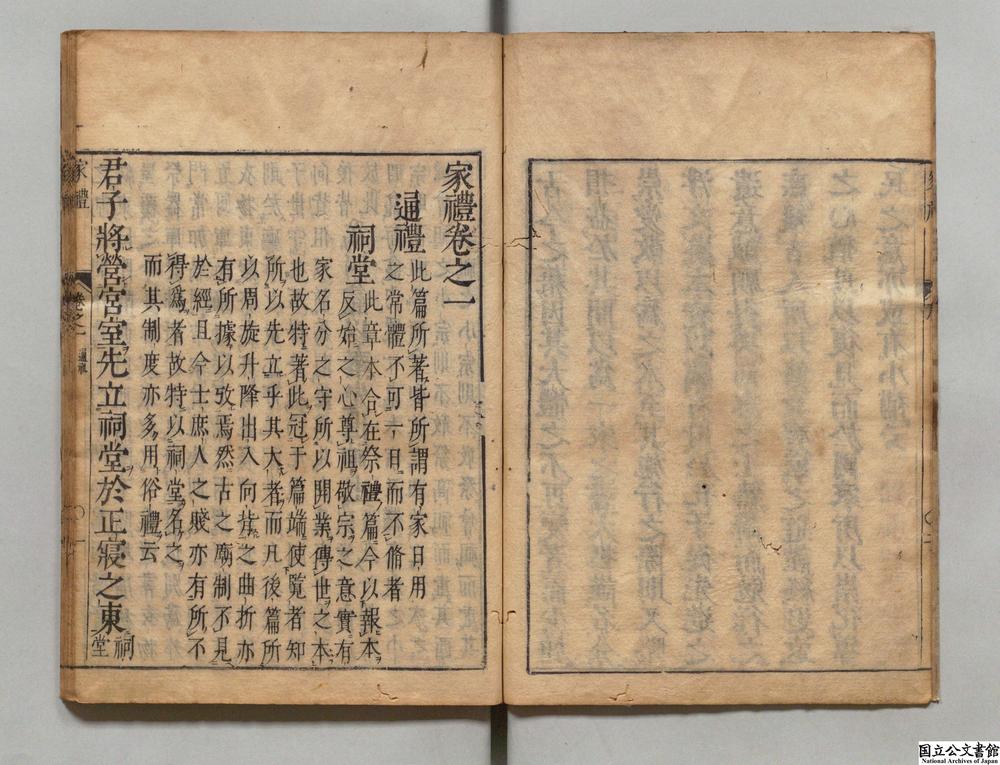 家禮卷之一
通禮 此篇所著皆所謂有家日用
之常體不可一日而不脩者
祠堂 此章本合在祭禮篇今以報本
反始之心尊祖敬宗之意實有
家名分之守所以開業傳世之本
也故特著此冠于篇端使覽者知
所以先立乎其大者而凡後篇所
以周旋升降出入向背之曲折亦
有所據以攷焉然古之廟制不見
於經且今士庶人之賤亦有所不
得爲者故特以祠堂名之
而其制度亦多用俗禮云
君子將營宮室先立祠堂於正寢之東 祠
堂
家禮
卷之一
通禮
〇一
国立公文書館
National Archives of Japan